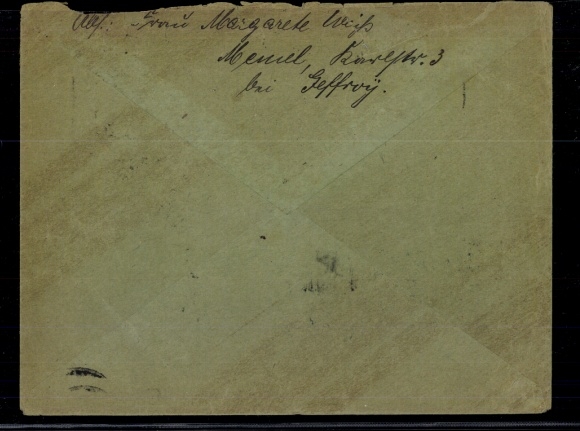 Abs.: Frau Margarete Weiß
Memel, Karlstr. 3
bei Geffroy.